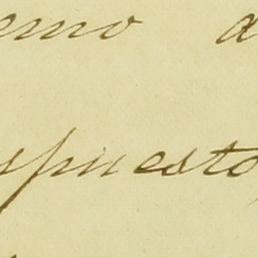 emo a
spuesto,